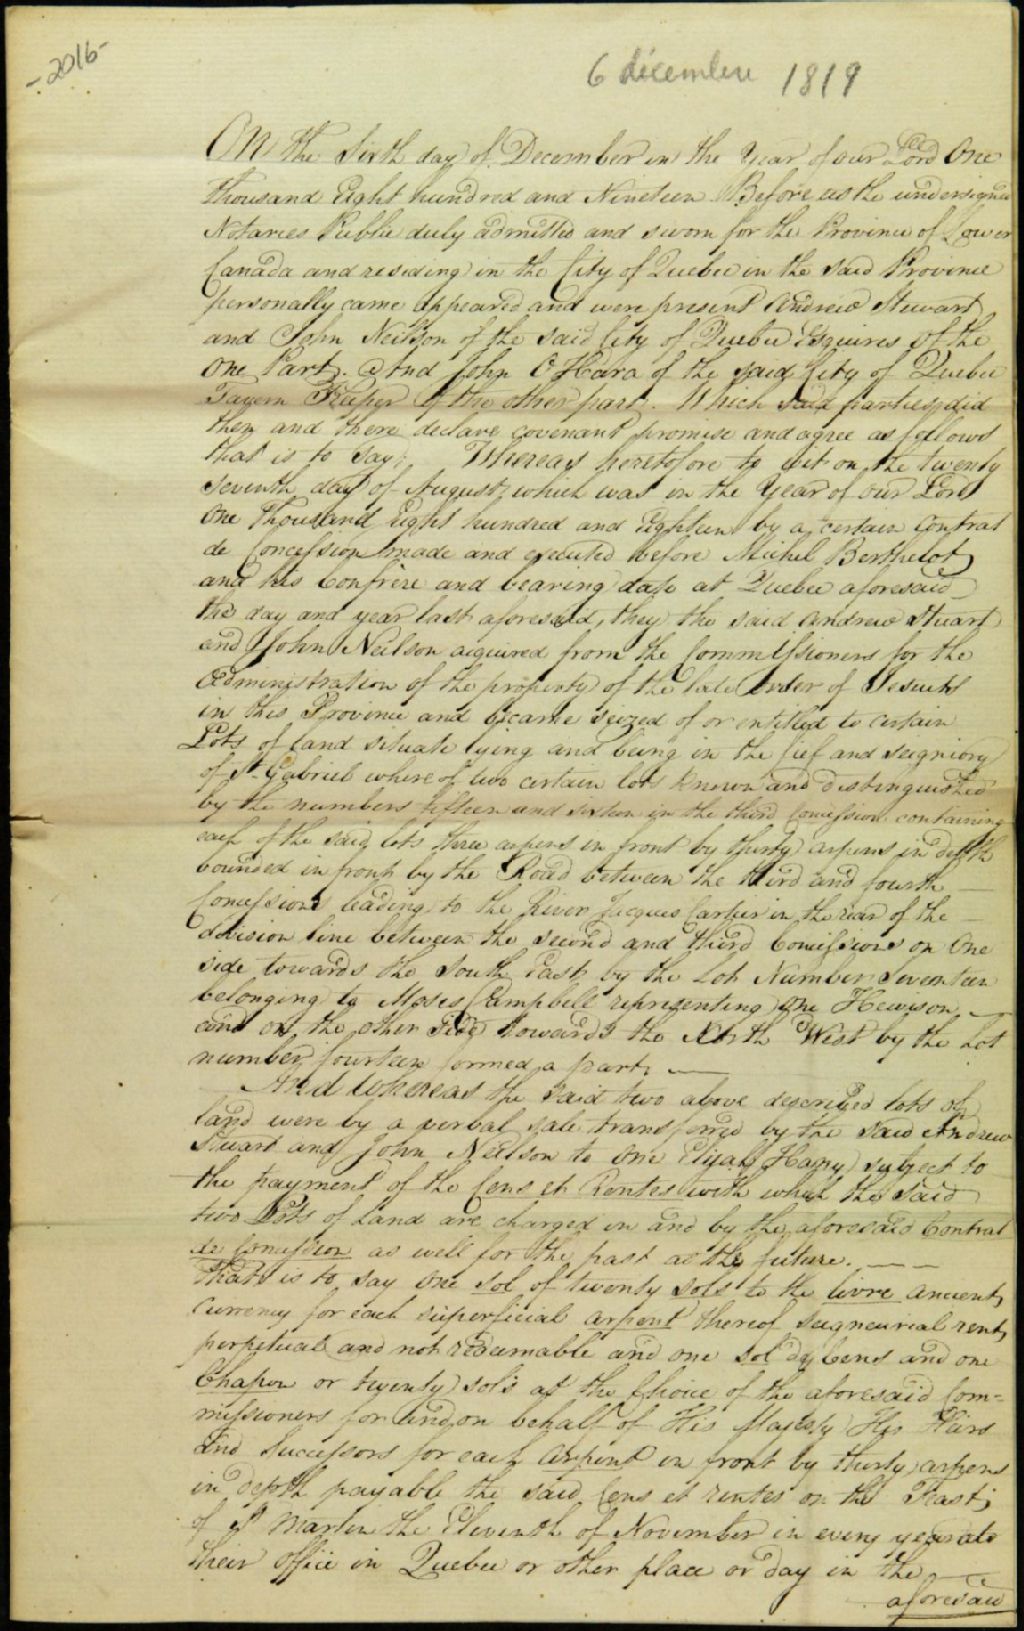 -2016-
6 décembre 1819
On the Sixth day of December in the Year of our Lord One
thousand Eight hundred and Nineteen Before us the undersigned
Notaries Public duly admitted and sworn for the Province of Lower
Canada and residing in the City of Quebec in the said Province
personally came appeared and were present Andrew Stuart
and John Neilson of the said City of Quebec Esquires of the
One Part. And John O'Hara of the said City of Quebec
Tavern Keeper of the other part. Which said parties did
then and there declare covenant promise and agree as follows
that is to say: Whereas heretofore to wit on the twenty
seventh day of August which was in the Year of our Lord
One Thousand Eight hundred and Eighteen by a certain Contrat
de Concession made and executed before Michel Berthelot
and his Confrère and bearing date at Quebec aforesaid
the day and year last aforesaid, they the said Andrew Stuart
and John Neilson acquired from the Commissioners for the
Administration of the property of the late Order of Jesuits
in this Province and became seized of or entitled to certain
Lots of land situate lying and being in the fief and seigniory
of St. Gabriel whereof two certain lots known and distinguished
by the numbers fifteen and sixteen in the third Concession containing
each of the said lots three arpens in front by thirty arpens in depth
bounded in front by the Road between the third and fourth
Concessions leading to the River Jacques Cartier in the rear of the
division line between the second and third Concessions on One
side towards the South East by the Lot Number Seventeen
belonging to Moses Campbell representing One Hewison
and on the other side towards the North West by the Lot
number fourteen formed a part.
And Whereas the said two above described lots of
land were by a verbal sale transferred by the said Andrew
Stuart and John Neilson to One Elijah subject to
the payment of the Cens et Rentes with which the said
two Lots of land are charged in and by the aforesaid Contrat
de Concession as well for the past as the future.
that is to say one sol of twenty sols to the livre ancient
currency for each superficial arpent thereof seigneurial rent,
perpetual and not redeemable and one sol of Cens and one
Chapon or twenty sols at the Choice of the aforesaid Com=
missioners for and on behalf of His Majesty His Heirs
and Successors for each arpent in front by thirty arpens
in depth payable the said Cens et rentes on the Feast
of St Martin the Eleventh of November in every year at
their office in Quebec or other place or day in the
aforesaid